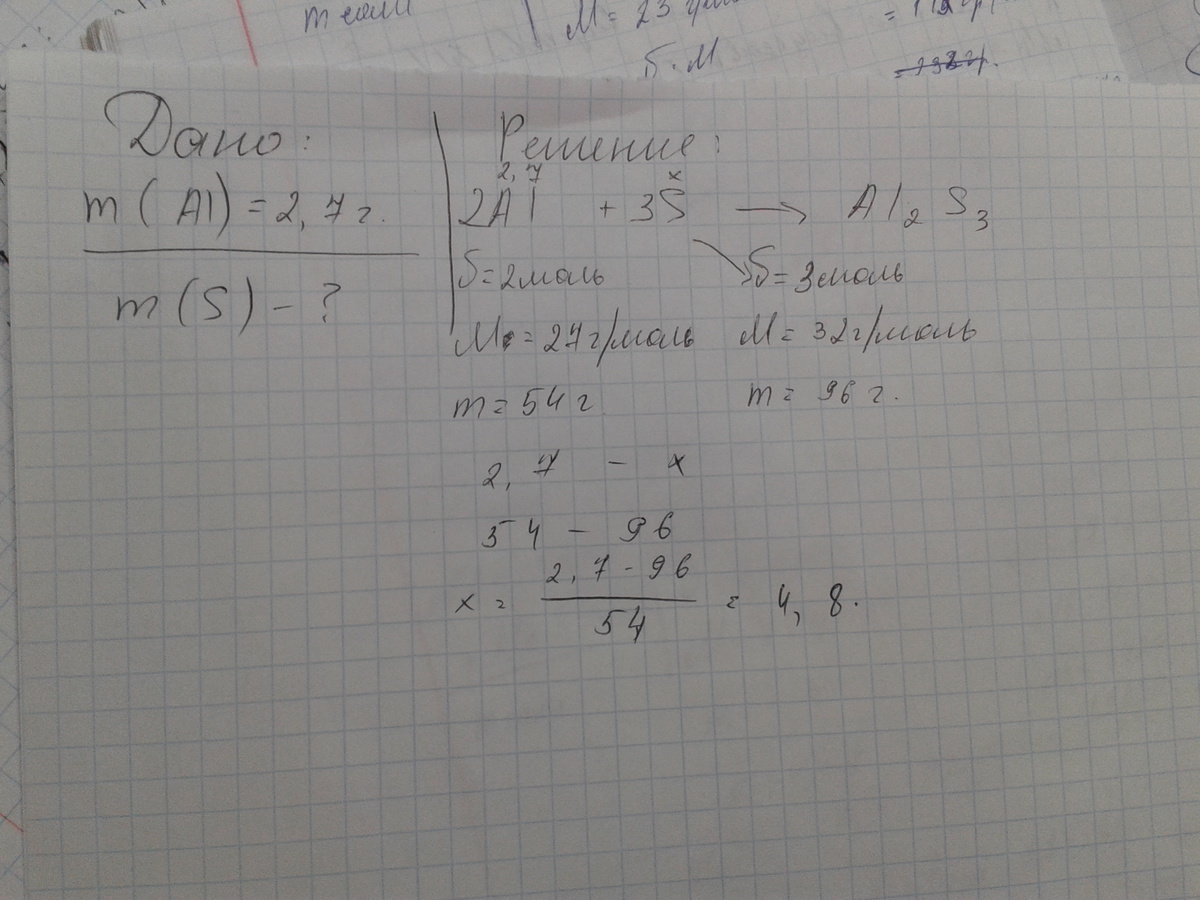 m соли
M= 23 г/моль
Б·M
Дано:
m (Al) = 2,7 г.
m (S) - ?
Решение:
2,7 x
2Al + 3S → Al2 S3
б=2моль б=3моль
M=27г/моль M=32г/моль
m=54 г m= 96 г.
2,7 - x
54 - 96
x = 2,7 - 96 / 54 = 4,8.